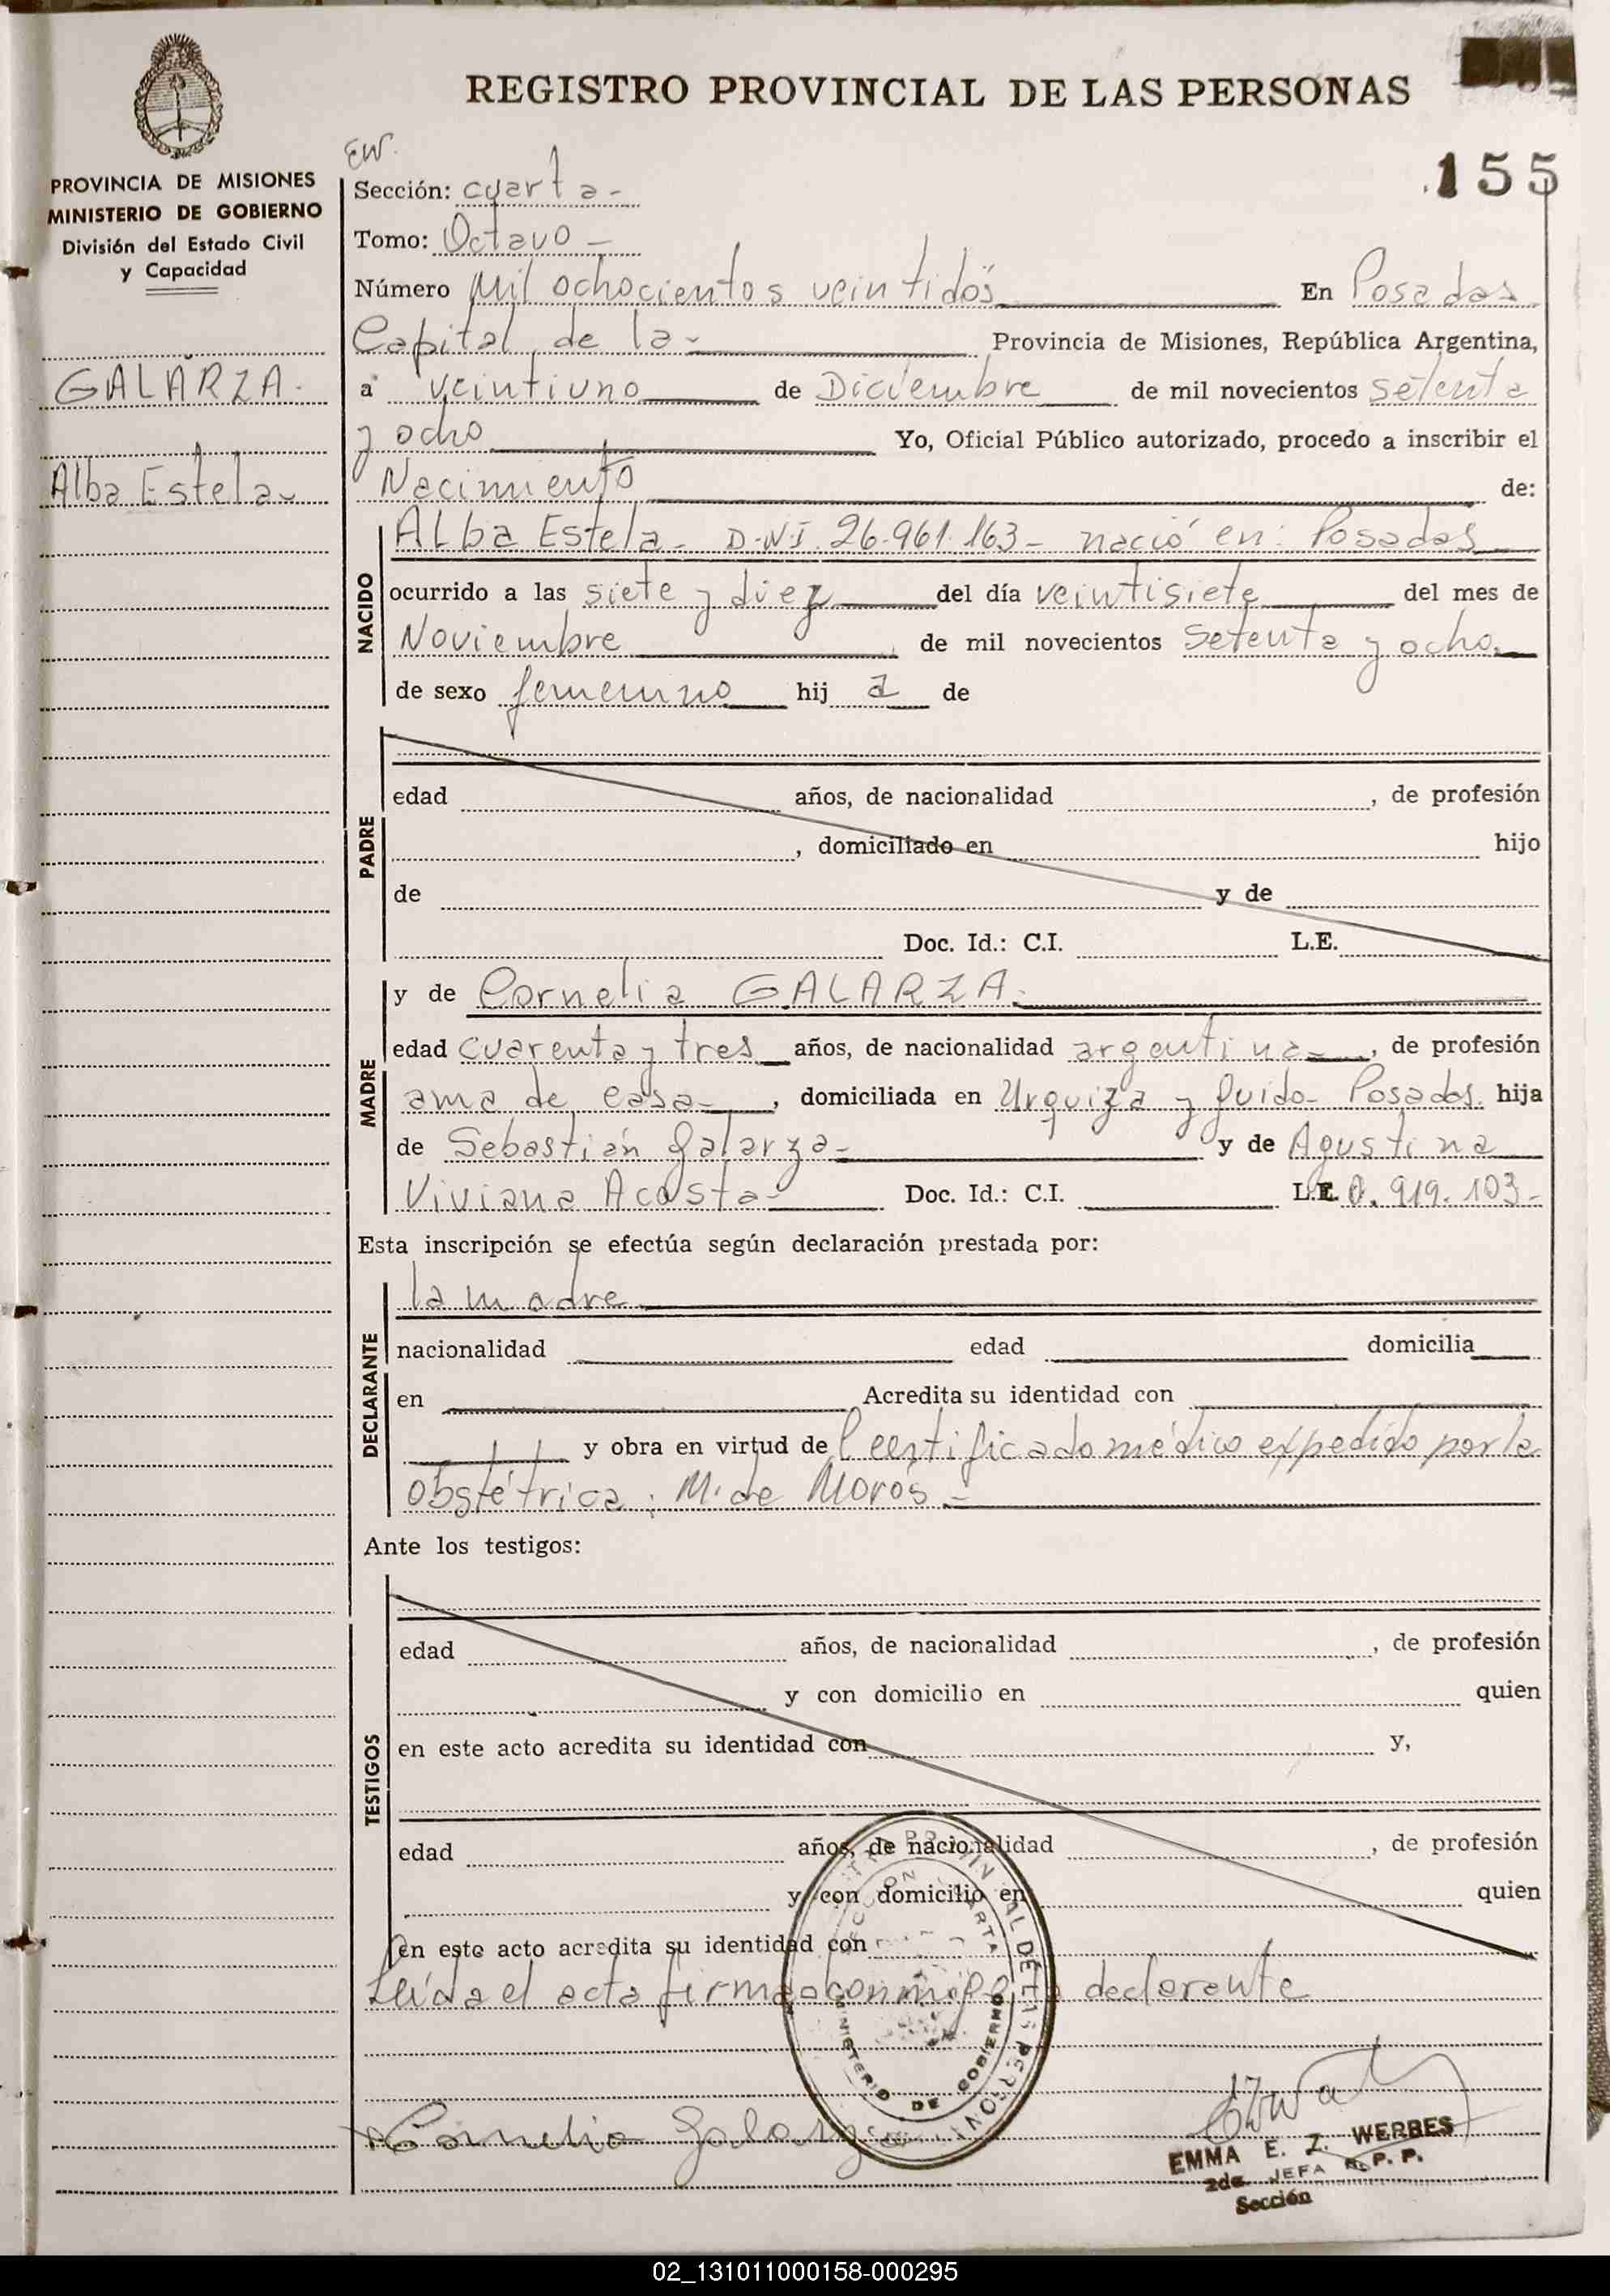 REGISTRO PROVINCIAL DE LAS PERSONAS
155
PROVINCIA DE MISIONES
MINISTERIO DE GOBIERNO
División del Estado Civil
y Capacidad
GALARZA.
Alba Estela
EW.
Sección: cuarta-
Tomo: Octavo-
Número Mil ochocientos veintidós En Posadas
Capital de la- Provincia de Misiones, República Argentina,
a veintiuno de Diciembre de mil novecientos setenta
y ocho Yo, Oficial Público autorizado, procedo a inscribir el
Nacimiento de:
NACIDO
Alba Estela- D.N.I. 26.961.163- nació en: Posadas
ocurrido a las siete y diez del día veintisiete del mes de
Noviembre de mil novecientos setenta y ocho.
de sexo femenino hij a de
PADRE
edad años, de nacionalidad , de profesión
, domiciliado en hijo
de y de
Doc. Id.: C.I. L.E.
MADRE
y de Cornelia GALARZA.
edad cuarenta y tres años, de nacionalidad argentina , de profesión
ama de casa- , domiciliada en Urquiza y Guido- Posadas. hija
de Sebastián Galarza- y de Agustina
Viviana Acosta- Doc. Id.: C.I. L.E. 0.919.103-
Esta inscripción se efectúa según declaración prestada por:
DECLARANTE
la madre
nacionalidad edad domicilia
en Acredita su identidad con
y obra en virtud del certificado médico expedido por la
obstétrica: M. de Morós-
Ante los testigos:
TESTIGOS
edad años, de nacionalidad , de profesión
y con domicilio en quien
en este acto acredita su identidad con y,
edad años, de nacionalidad , de profesión
y con domicilio en quien
en este acto acredita su identidad con
Leída el acta firma conmigo la declarante
MINISTERIO DE GOBIERNO
Cornelia Galarza
EMMA E. Z. WERBES
2da. JEFA R. P. P.
Sección
02_131011000158-000295